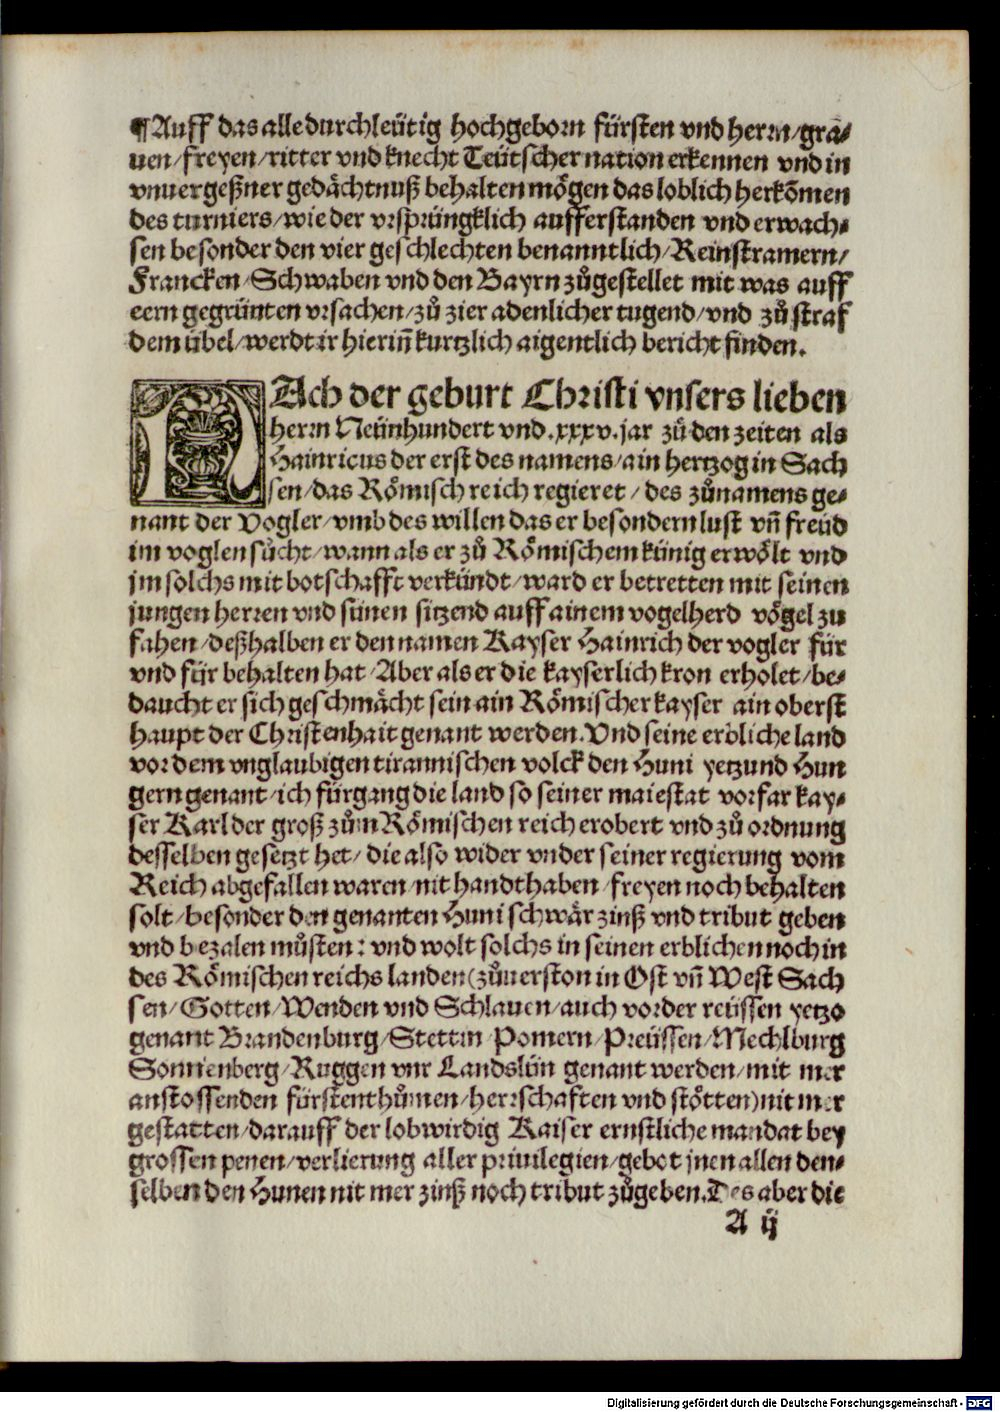 ¶Auff das alle durchleütig hochgeborn fürsten vnd herrn/gra-
uen/freyen/ritter vnd knecht Teütscher nation erkennen vnd in
vnuergeßner gedächtnuß behalten mögen das loblich herkōmen
des turniers/wie der vrsprüngklich aufferstanden vnd erwach-
sen besonder den vier geschlechten benanntlich/Reinstramern/
Francken/Schwaben vnd den Bayrn zůgestellet mit was auff
eern gegrünten vrsachen/zů zier adenlicher tugend/vnd zů straf
dem übel/werdt ir hieriñ kurtzlich aigentlich bericht finden.
NAch der geburt Christi vnsers lieben
herrn Neünhundert vnd .xxxv. jar zů den zeiten als
Hainricus der erst des namens/ain hertzog in Sach
sen/das Römisch reich regieret/des zůnamens ge-
nant der Vogler/vmb des willen das er besondern lust vñ freüd
im voglen sůcht/wann als er zů Römischem künig erwölt vnd
jm solchs mit botschafft verkündt/ward er betretten mit seinen
jungen herren vnd sünen sitzend auff ainem vogelherd vögel zu
fahen/deßhalben er den namen Kayser Hainrich der vogler für
vnd für behalten hat/Aber als er die kayserlich kron erholet/be-
daucht er sich geschmächt sein ain Römischer kayser ain oberst
haupt der Christenhait genant werden. Vnd seine erbliche land
vor dem vnglaubigen tirannischen volck den Huni yetzund Hun
gern genant/ich fürgang die land so seiner maiestat vorfar kay-
ser Karl der groß zům Römischen reich erobert vnd zů ordnung
desselben gesetzt het/die also wider vnder seiner regierung vom
Reich abgefallen waren/nit handthaben/freyen noch behalten
solt/besonder den genanten Huni schwär zinß vnd tribut geben
vnd bezalen můsten: vnd wolt solchs in seinen erblichen noch in
des Römischen reichs landen (zůuerston in Ost vñ West Sach
sen/Gotten/Wenden vnd Schlauen/auch vorder reüssen yetzo
genant Brandenburg/Stettin/Pomern/Preüssen/Mechlburg
Sonnenberg/Ruggen vnr Landslün genant werden/mit mer
anstossenden fürstenthůmen/herrschaften vnd stötten) nit mer
gestatten/darauff der lobwirdig Kaiser ernstliche mandat bey
grossen penen/verlierung aller priuilegien/gebot jnen allen den-
selben den Hunen nit mer zinß noch tribut zůgeben. Des aber die
A ij
Digitalisierung gefördert durch die Deutsche Forschungsgemeinschaft - DFG